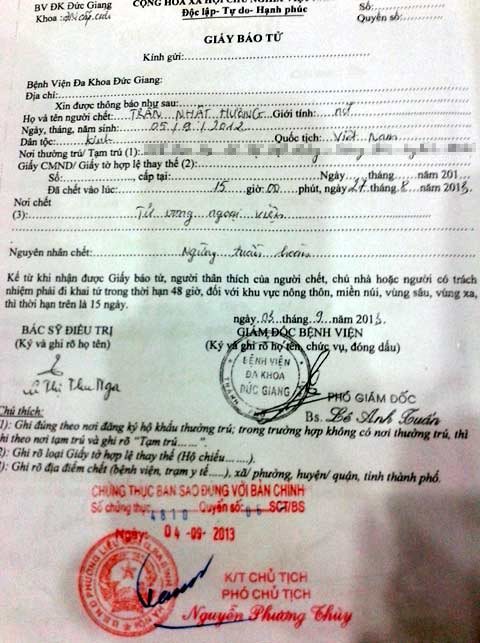 BV ĐK Đức Giang
CỘNG HÒA XÃ HỘI CHỦ NGHĨA VIỆT
Số:
Khoa:
Độc lập- Tự do- Hạnh phúc
Quyển số:
GIẤY BÁO TỬ
Kính gửi:
Bệnh Viện Đa Khoa Đức Giang:
Địa chỉ:
Xin được thông báo như sau:
Họ và tên người chết: TRẦN NHẤT HƯƠNG Giới tính: nữ
Ngày, tháng, năm sinh: 05/9/2012
Dân tộc: Kinh Quốc tịch: Việt Nam
Nơi thường trú/ Tạm trú (1):
Giấy CMND/ Giấy tờ hợp lệ thay thế (2):
Số: cấp tại: Ngày tháng năm 201
Đã chết vào lúc: 15 giờ: 00 phút, ngày 27 tháng 8 năm 2013
Nơi chết
(3): Tử vong ngoại viện
Nguyên nhân chết: Ngừng tuần hoàn
Kể từ khi nhận được Giấy báo tử, người thân thích của người chết, chủ nhà hoặc người có trách
nhiệm phải đi khai tử trong thời hạn 48 giờ, đối với khu vực nông thôn, miền núi, vùng sâu, vùng xa,
thì thời hạn trên là 15 ngày.
ngày 03 tháng 9 năm 2013
BÁC SỸ ĐIỀU TRỊ
GIÁM ĐỐC BỆNH VIỆN
(Ký và ghi rõ họ tên)
(Ký và ghi rõ họ tên, chức vụ, đóng dấu)
BỆNH VIỆN
ĐA KHOA
ĐỨC GIANG
Thị Thu Nga
PHÓ GIÁM ĐỐC
Bs. Lê Anh Tuấn
Chú thích:
1): Ghi đúng theo nơi đăng ký hộ khẩu thường trú; trong trường hợp không có nơi thường trú, thì
hi theo nơi tạm trú và ghi rõ “Tạm trú……”.
2): Ghi rõ loại Giấy tờ hợp lệ thay thế (Hộ chiếu ……..).
): Ghi rõ địa điểm chết (bệnh viện, trạm y tế …..), xã/ phường, huyện/ quận, tỉnh thành phố.
CHỨNG THỰC BẢN SAO ĐÚNG VỚI BẢN CHÍNH
Số chứng thực: 4810 Quyển số: SCT/BS
Ngày: 04 -09- 2013
K/T CHỦ TỊCH
PHÓ CHỦ TỊCH
Nguyễn Phương Thùy